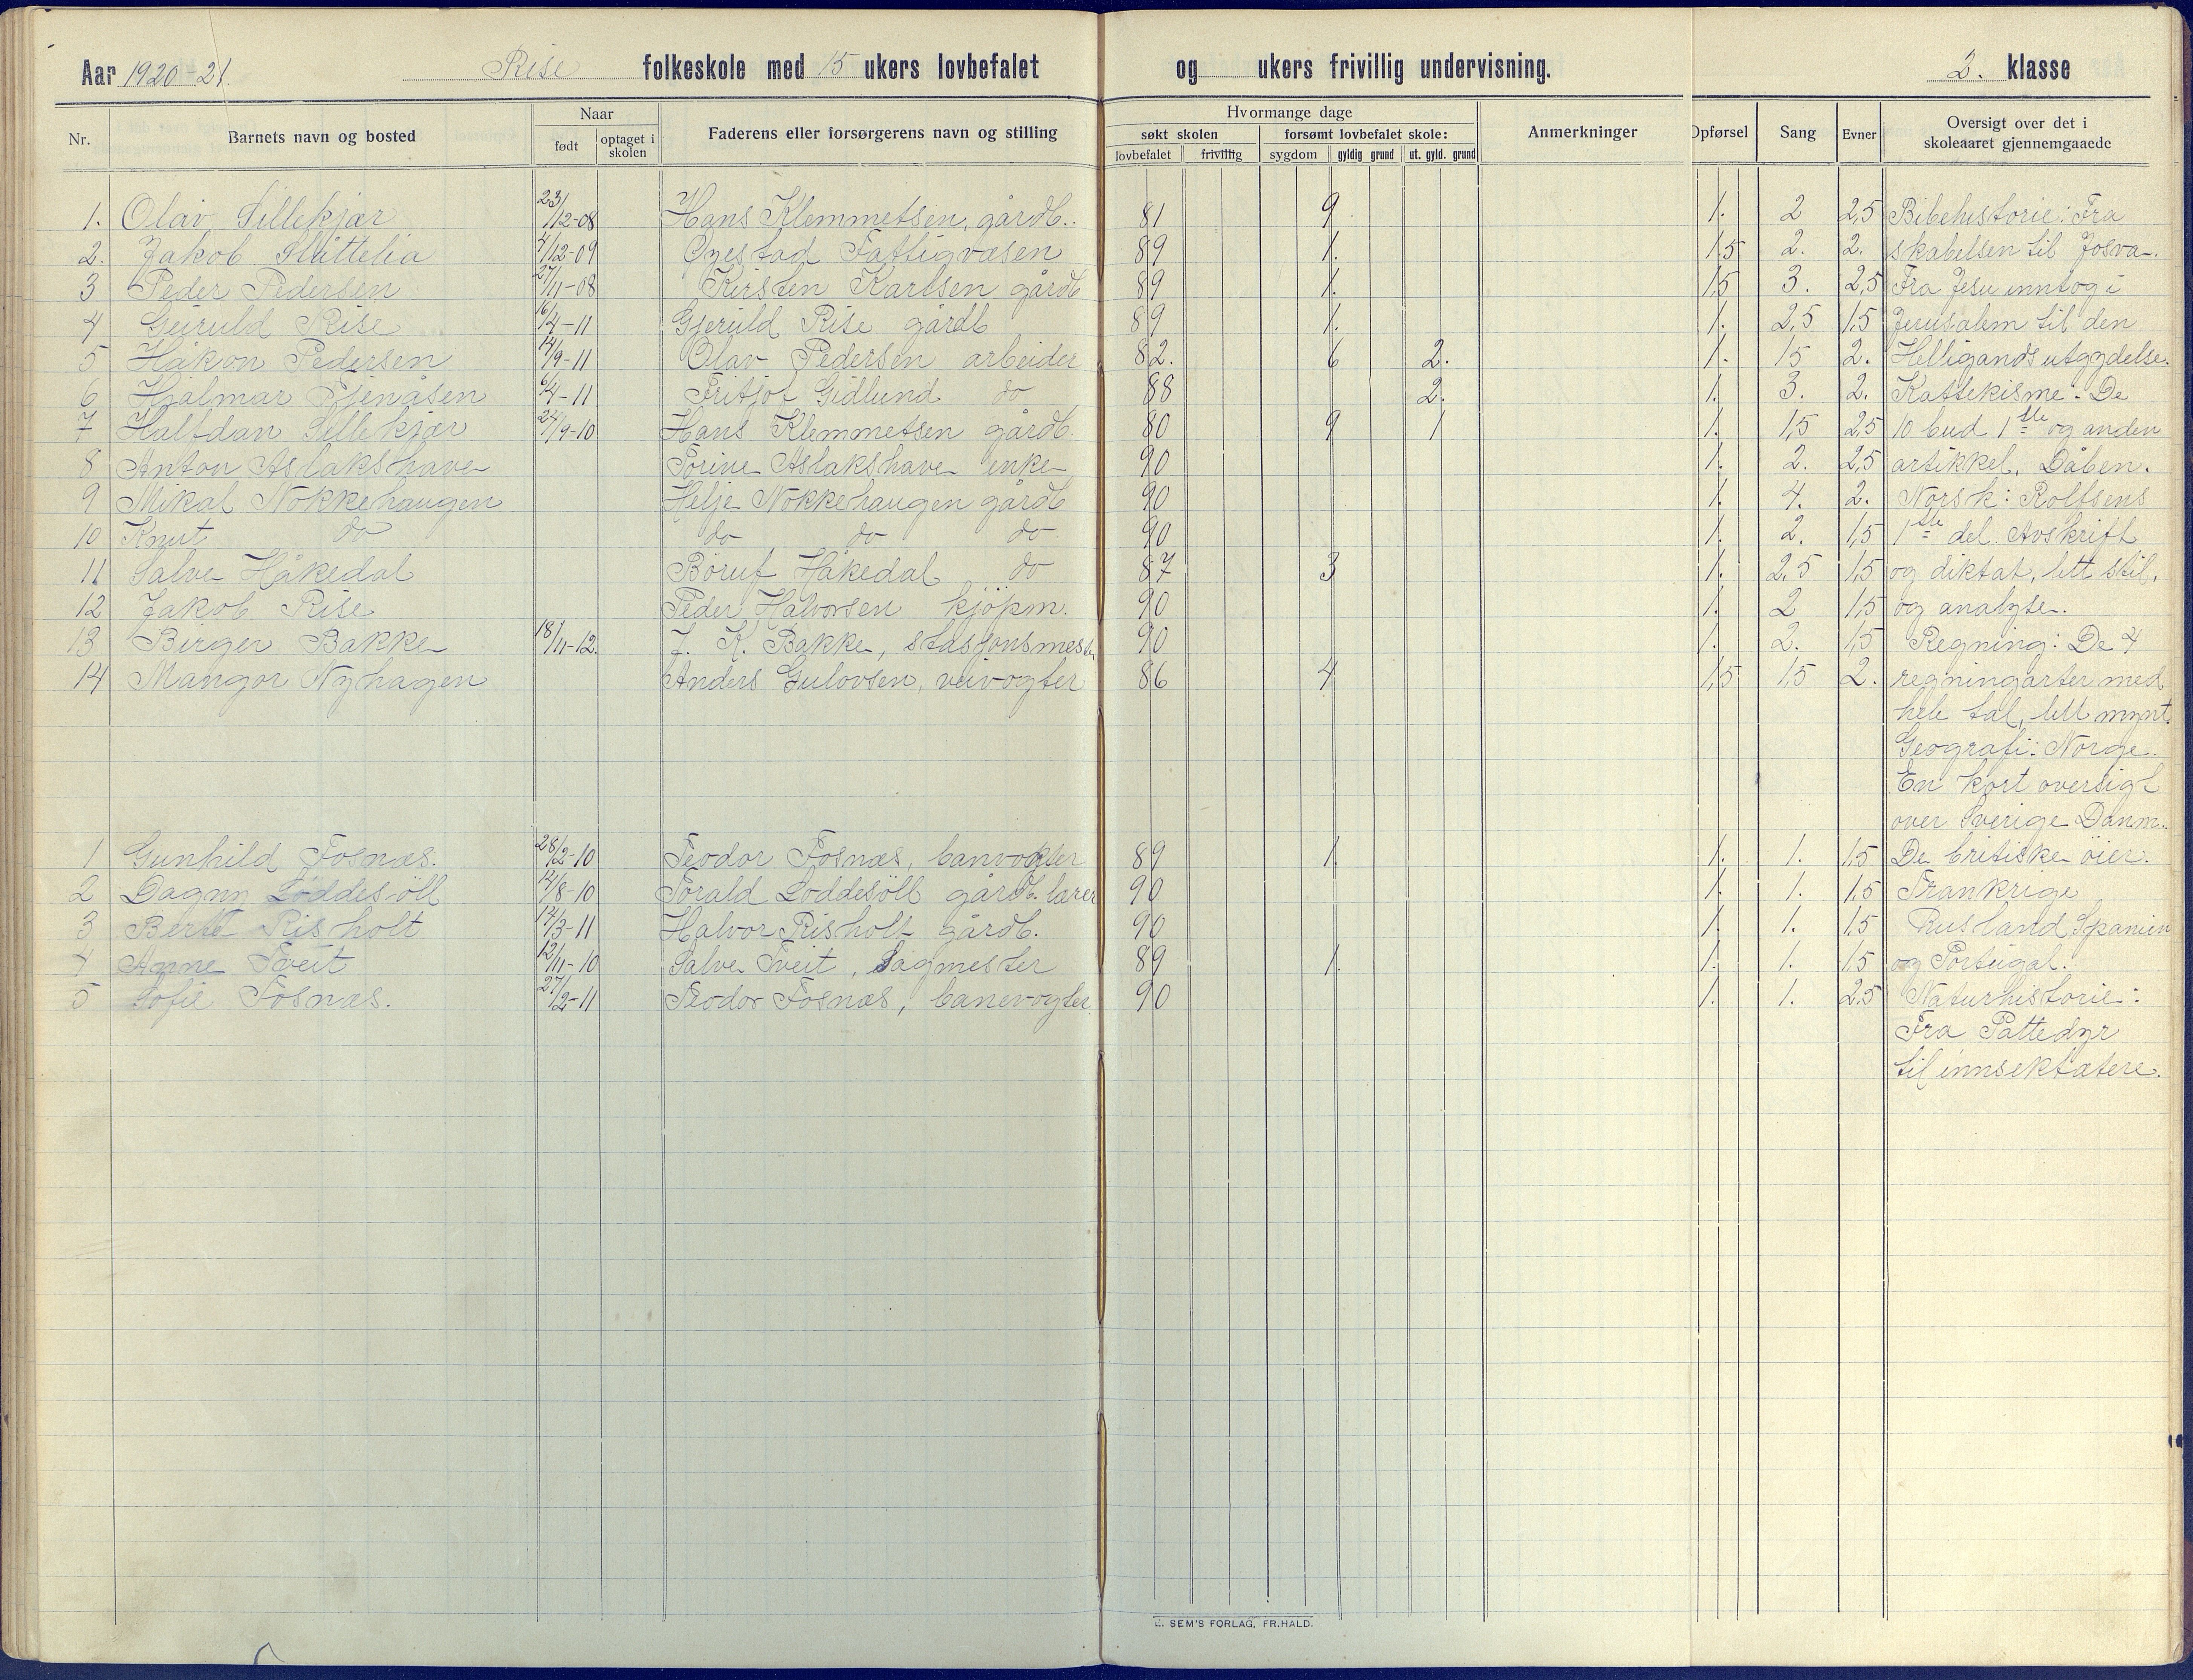 Aar 1920-21. Rise folkeskole med 15 ukers lovbefalet og ukers frivillig undervisning. 2. klasse
Nr. Barnets navn og bosted Naar født optaget i skolen Faderens eller forsørgerens navn og stilling Hvormange dage søkt skolen lovbefalet frivillig forsømt lovbefalet skole: sygdom gyldig grund ut. gyld. grund Anmerkninger Opførsel Sang Evner Oversigt over det i skoleaaret gjennemgaaede
1. Olav Sillekjær 23/12-08 Hans Klemmetsen, gårdb. 81 9 1. 2 2,5 Bibehistorie: Fra
2. Jakob Slåttelia 4/12-09 Øyestad Fattigvæsen 89 1. 1,5 2. 2. skabelsen til Josva.
3 Peder Pedersen 27/11-08 Kirsten Karlsen gårdb 89 1. 1,5 3. 2,5 Fra Jesu inntog i
4 Geiruld Rise 16/4-11 Gjeruld Rise gårdb 89 1. 1. 2,5 1,5 Jerusalem til den
5 Håkon Pedersen 14/9-11 Olav Pedersen arbeider 82. 6 2. 1. 15 2. Helligands utgydelse.
6 Hjalmar 6/4-11 Fritjof Gidlund do 88 2. 1. 3. 2. Kattekisme: De
7 Halfdan Sillekjær 24/9-10 Hans Klemmetsen gårdb. 80 9 1 1. 1,5 2,5 10 bud 1ste og anden
8 Anton Aslakshave Torine Aslakshave enke 90 1. 2. 2,5 artikkel. Dåben.
9 Mikal Nokkehaugen Helje Nokkehaugen gårdb 90 1. 4. 2. Norsk: Rolfsens
10 Knut do do do do 90 1. 2. 1,5 1ste del. Avskrift
11 Salve Håkedal Böruf Håkedal do 87 3 1. 2.5 1,5 og diktat, lett stil,
12 Jakob Rise Peder Halvorsen kjöpm. 90 1. 2 1,5 og analyse.
13 Birger Bakke 18/11-12. J. K. Bakke, stasjonsmest. 90 1. 2. 1,5 Regning: De 4
14 Mangor Nyhagen Anders Gulovsen, veivogter 86 4 1,5 1,5 2. regningarter med
hele tal, lett mynt.
Geografi: Norge.
En kort oversigt
over Sverige Danm.
1 Gunhild Fosnæs. 28/2-10 Teodor Fosnæs, banvokter 89 1 1. 1. 1,5 De britiske öier.
2 Dagny Löddesöll 14/8-10 Torald Loddesöll gårdb. lærer 90 1. 1. 1.5 Frankrige
3 Berte Risholt 14/3-11 Halvor Risholt gårdb. 90 1. 1. 1.5 Rusland Spanien
4 Anne Tveit 12/11-10 Salve Tveit, Sagmester 89 1. 1. 1. 1.5 og Portugal.
5 Sofie Fosnæs. 27/2-11 Teodor Fosnæs, banevogter. 90 1. 1. 2.5 Naturhistorie:
Fra Pattedyr
til innsektætere.
SEM'S FORLAG, FR.HALD.